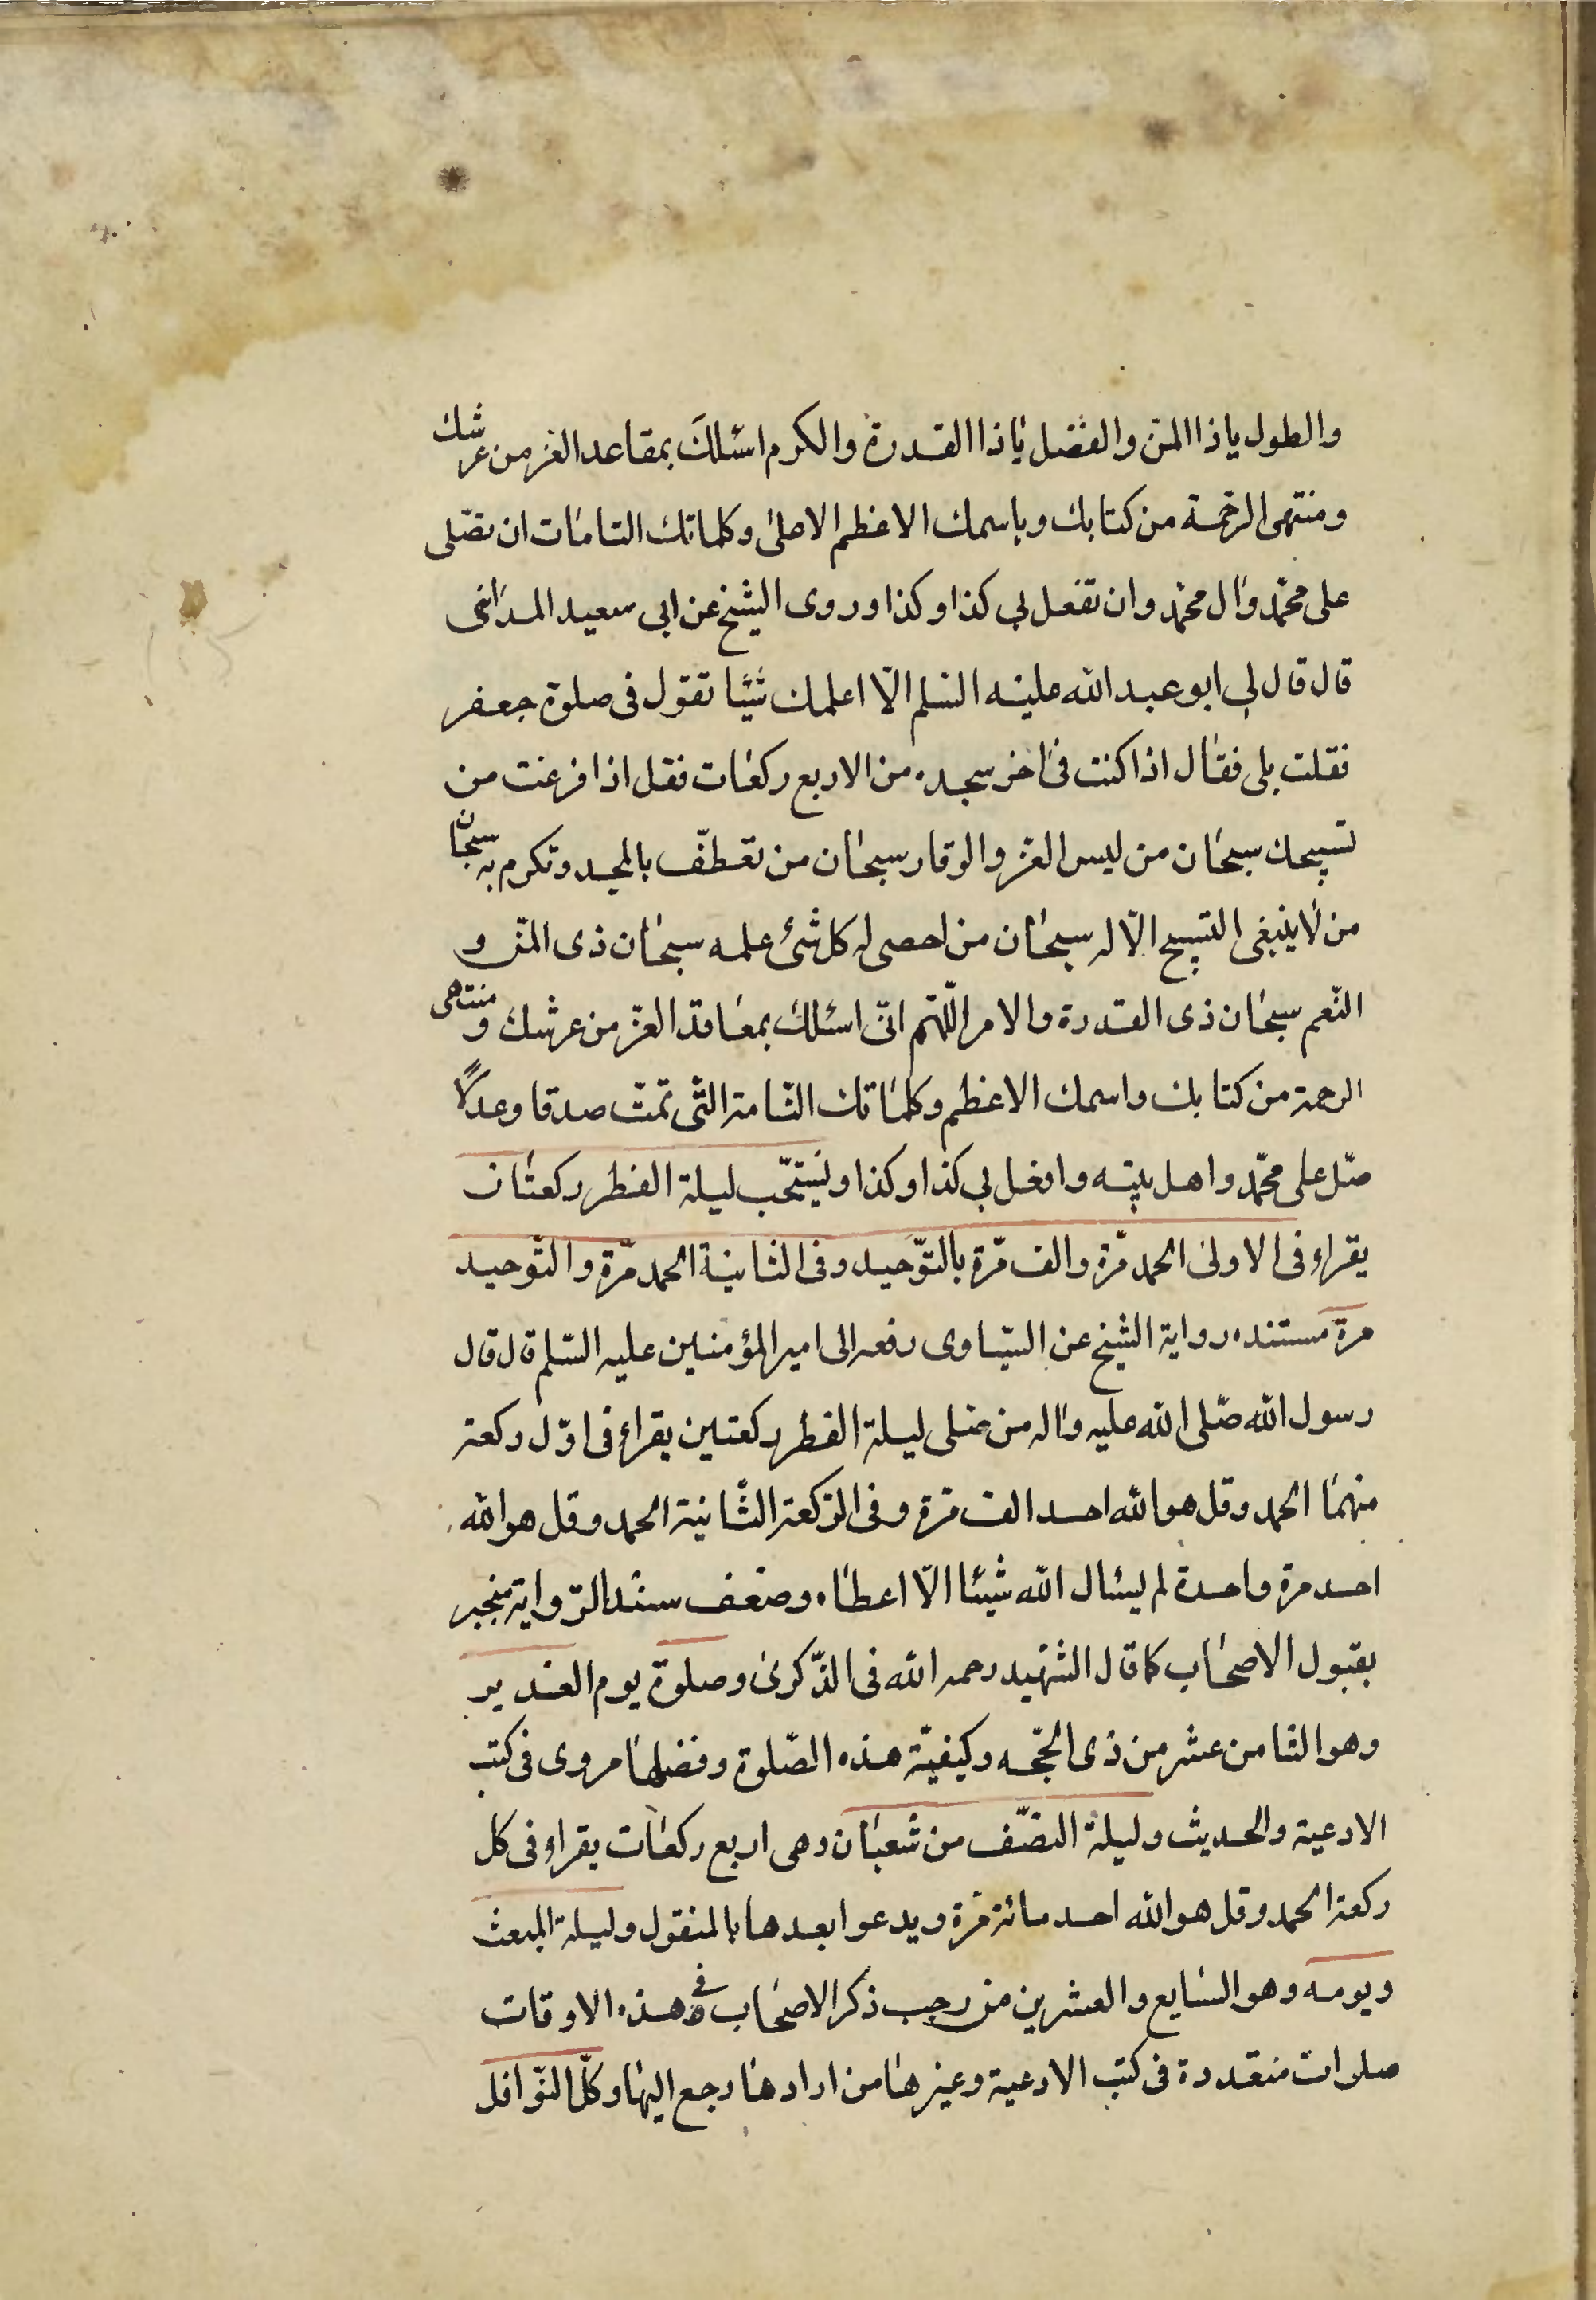 والطول ياذا المن والفضل ياذا القدرة والكرم اسئلك بمقاعد العز من عرشك
ومنتهى الرحمة من كتابك وباسمك الاعظم الاعلى وكلماتك التامات ان تصلى
على محمد وال محمد وان تفعل بى كذا وكذا وروى الشيخ عن ابى سعيد المداينى
قال قال لى ابو عبد الله عليه السلم الا اعلمك شيئا تقول فى صلوة جعفر
فقلت بلى فقال اذا كنت فى اخر سجده من الاربع ركعات فقل اذا فرغت من
تسبيحك سبحان من لبس العز والوقار سبحان من تعطف بالمجد وتكرم به سبحان
من لا ينبغى التسبيح الا له سبحان من احصى له كل شئ علمه سبحان ذى المن و
النعم سبحان ذى القدرة والامر اللهم انى اسئلك بمعاقد العز من عرشك و منتهى
الرحمة من كتابك واسمك الاعظم وكلماتك التامة التى تمت صدقا وعدلا
صل على محمد واهل بيته وافعل بى كذا وكذا ويستحب ليلة الفطر ركعتان
يقراء فى الاولى الحمد مرة والف مرة بالتوحيد وفى الثانية الحمد مرة والتوحيد
مرة مستنده رواية الشيخ عن السيارى رفعه الى امير المؤمنين عليه السلم قال قال
رسول الله صلى الله عليه واله من صلى ليلة الفطر ركعتين يقراء فى اول ركعة
منهما الحمد وقل هو الله احد الف مرة وفى الركعة الثانية الحمد وقل هو الله
احد مرة واحدة لم يسئال الله شيئا الا اعطاه وضعف سند الرواية منجبر
بقبول الاصحاب كما قال الشهيد رحمه الله فى الذكرى وصلوة يوم الغدير
وهو الثامن عشر من ذى الحجه وكيفية هذه الصلوة وفضلها مروى فى كتب
الادعية والحديث وليلة النصف من شعبان وهى اربع ركعات يقراء فى كل
ركعة الحمد وقل هو الله احد مائة مرة ويدعوا بعدها بالمنقول وليلة المبعث
ويومه وهو السابع والعشرين من رجب ذكر الاصحاب فى هذه الاوقات
صلوات متعددة فى كتب الادعية وغيرها من ارادها رجع اليها وكل النوافل